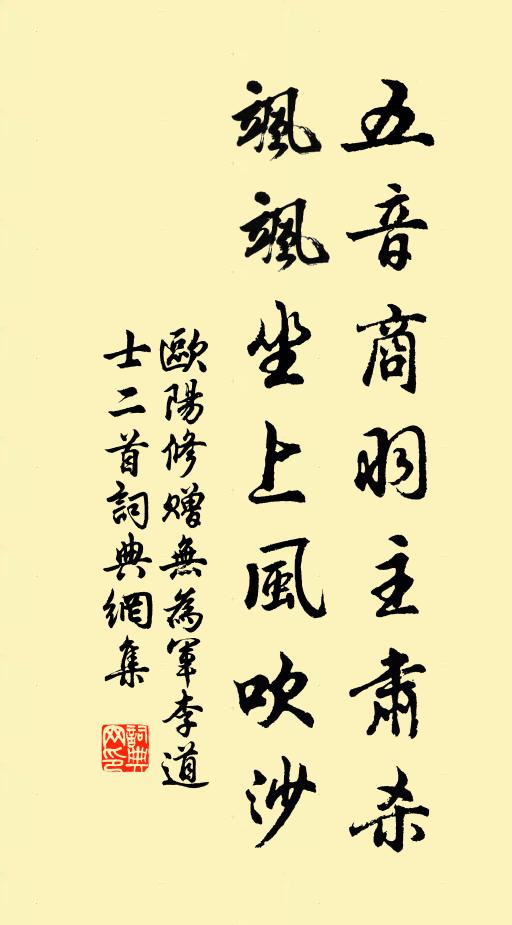 五音商羽主肅杀
颯颯坐上風吹沙
歐陽修贈無為軍李道
士二首詞典網集
詞典
网印